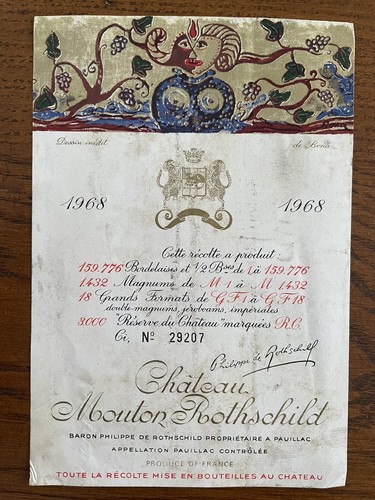 Dessin inédit de Bona
1968 1968
Cette récolte a produit:
159.776 Bordelaises et 1/2 Bses de 1 à 159.776
1.432 Magnums de M 1 à M 1.432
18 Grands Formats de G F 1 à G F 18
double magnums, jéroboams, impériales
3000 "Réserve du Château" marquées R.C.
Ci, Nº 29207
Philippe de Rothschild
Château
Mouton Rothschild
BARON PHILIPPE DE ROTHSCHILD PROPRIÉTAIRE A PAUILLAC
APPELLATION PAUILLAC CONTRÔLÉE
PRODUCE OF FRANCE
TOUTE LA RÉCOLTE MISE EN BOUTEILLES AU CHÂTEAU